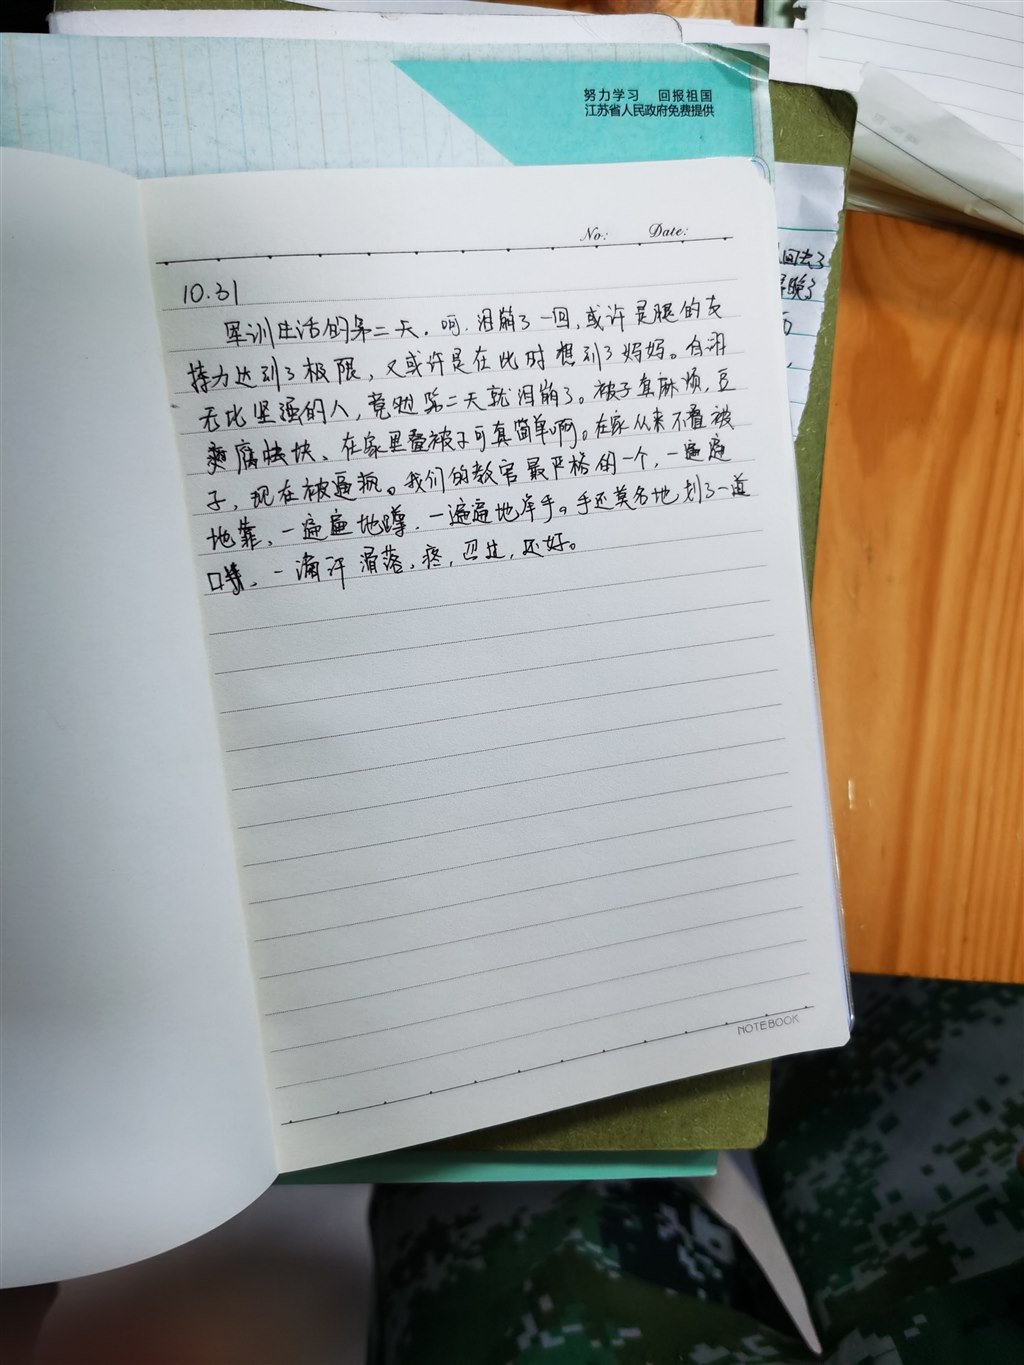 努力学习 回报祖国
江苏省人民政府免费提供
No: Date:
10.31
军训生活的第二天。呵,泪崩了一回,或许是腿的支
持力达到了极限,又或许是在此时想到了妈妈。自诩
无比坚强的人,竟然第二天就泪崩了。被子真麻烦,豆
腐块、在家里叠被子可真简单啊。在家从来不叠被
子,现在被逼疯。我们的教官最严格的一个,一遍遍
地靠、一遍遍地蹲、一遍遍地摆手。手还莫名地划了一道
口,一滴汗滑落,疼,忍过,还好。
回去了
晚了
NOTEBOOK